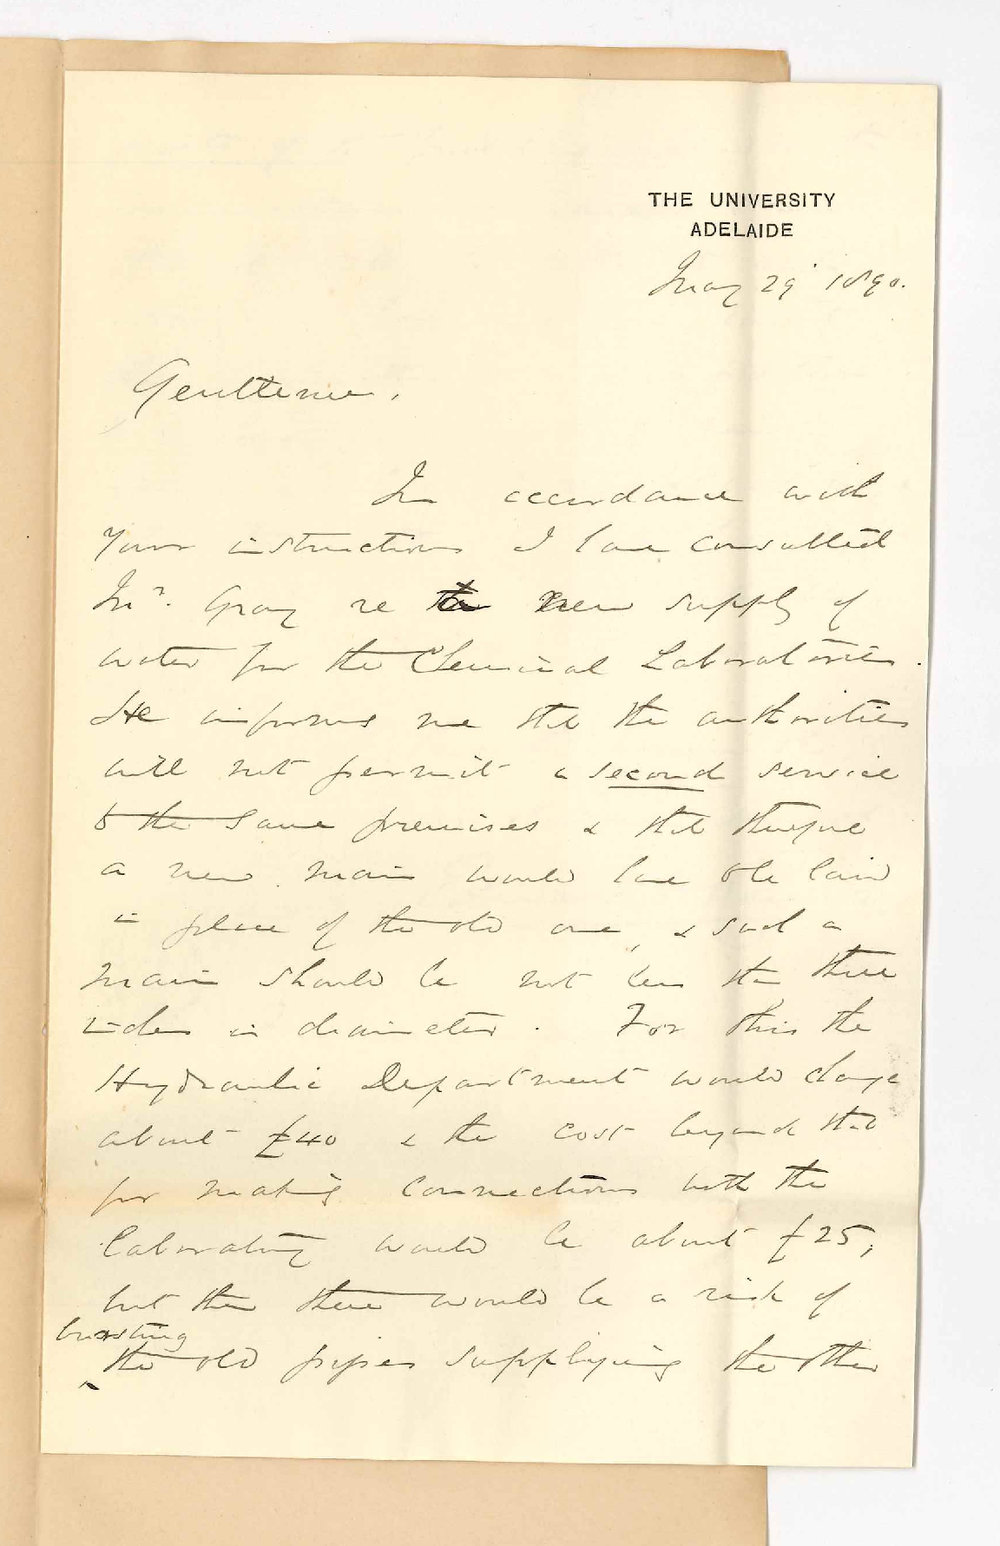 THE UNIVERSITY
ADELAIDE
May 29 1890.
Gentlemen.
In accordance with
Your instructions I have consulted
Mr. Gray re new supply of
water for the Chemical Laboratories.
He informs me that the authorities
will not permit a second service
to the same premises & that therefore
a new main would have to be laid
in place of the old one, & such a
main should be not less than three
inches in diameter. For this the
Hydraulic Department would charge
about £40 & the cost beyond that
for making connections with the
laboratory would be about £25,
but then there would be a risk of
bursting
the old pipes supplying the other